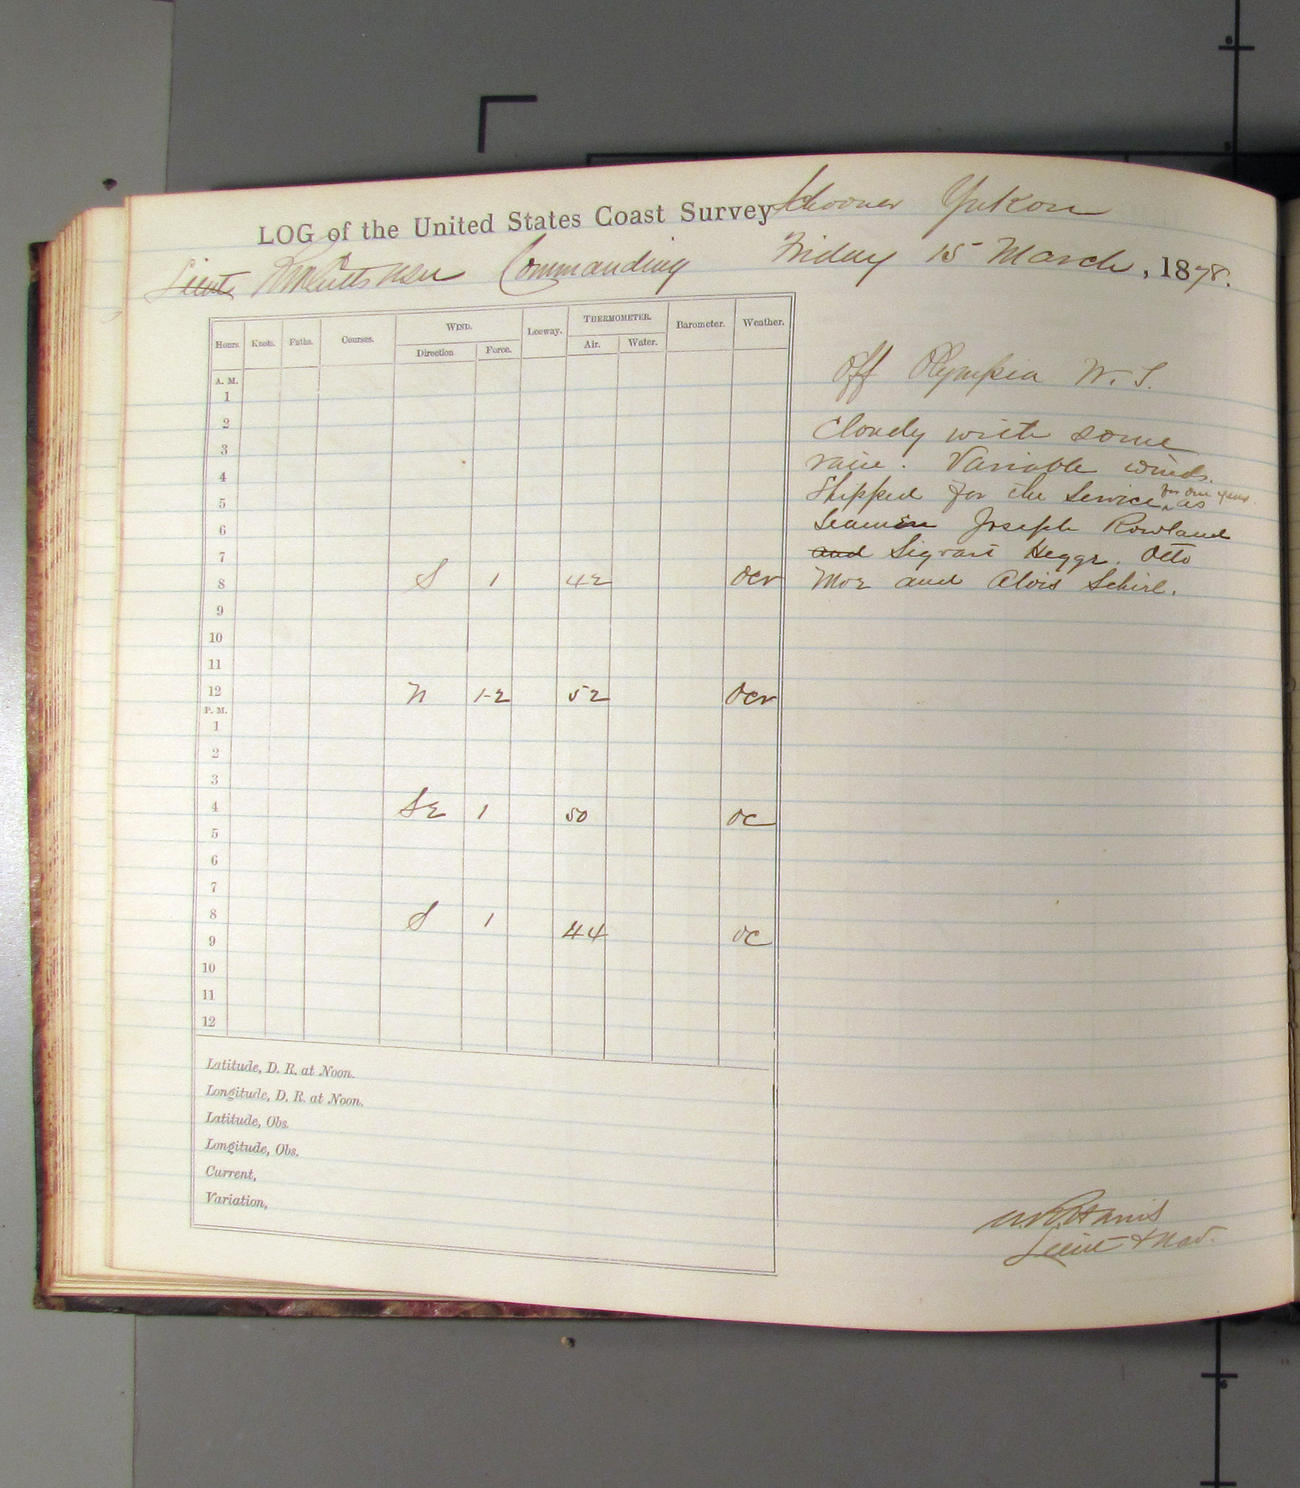 LOG of the United States Coast Survey Schooner Yukon
Lieut R M Cutts USN Commanding Friday 15 March, 1878.
Hours. Knots. Faths. Courses. WIND. Leeway. THERMOMETER. Barometer. Weather.
Direction Force. Air. Water.
A. M.
1
2
3
4
5
6
7
8 S 1 42 ocr
9
10
11
12 N 1-2 52 ocr
P. M.
1
2
3
4 SE 1 50 oc
5
6
7
8 S 1 44 oc
9
10
11
12
Latitude, D. R. at Noon.
Longitude, D. R. at Noon.
Latitude, Obs.
Longitude, Obs.
Current,
Variation,
Off Olympia W. T.
Cloudy with some
rain. Variable winds.
Shipped for the Service for one year as
Seamen Joseph Rowland
and Sigvart Hegge. Otto
Moe and Alois Schirl.
Harris
Lieut & Nav.